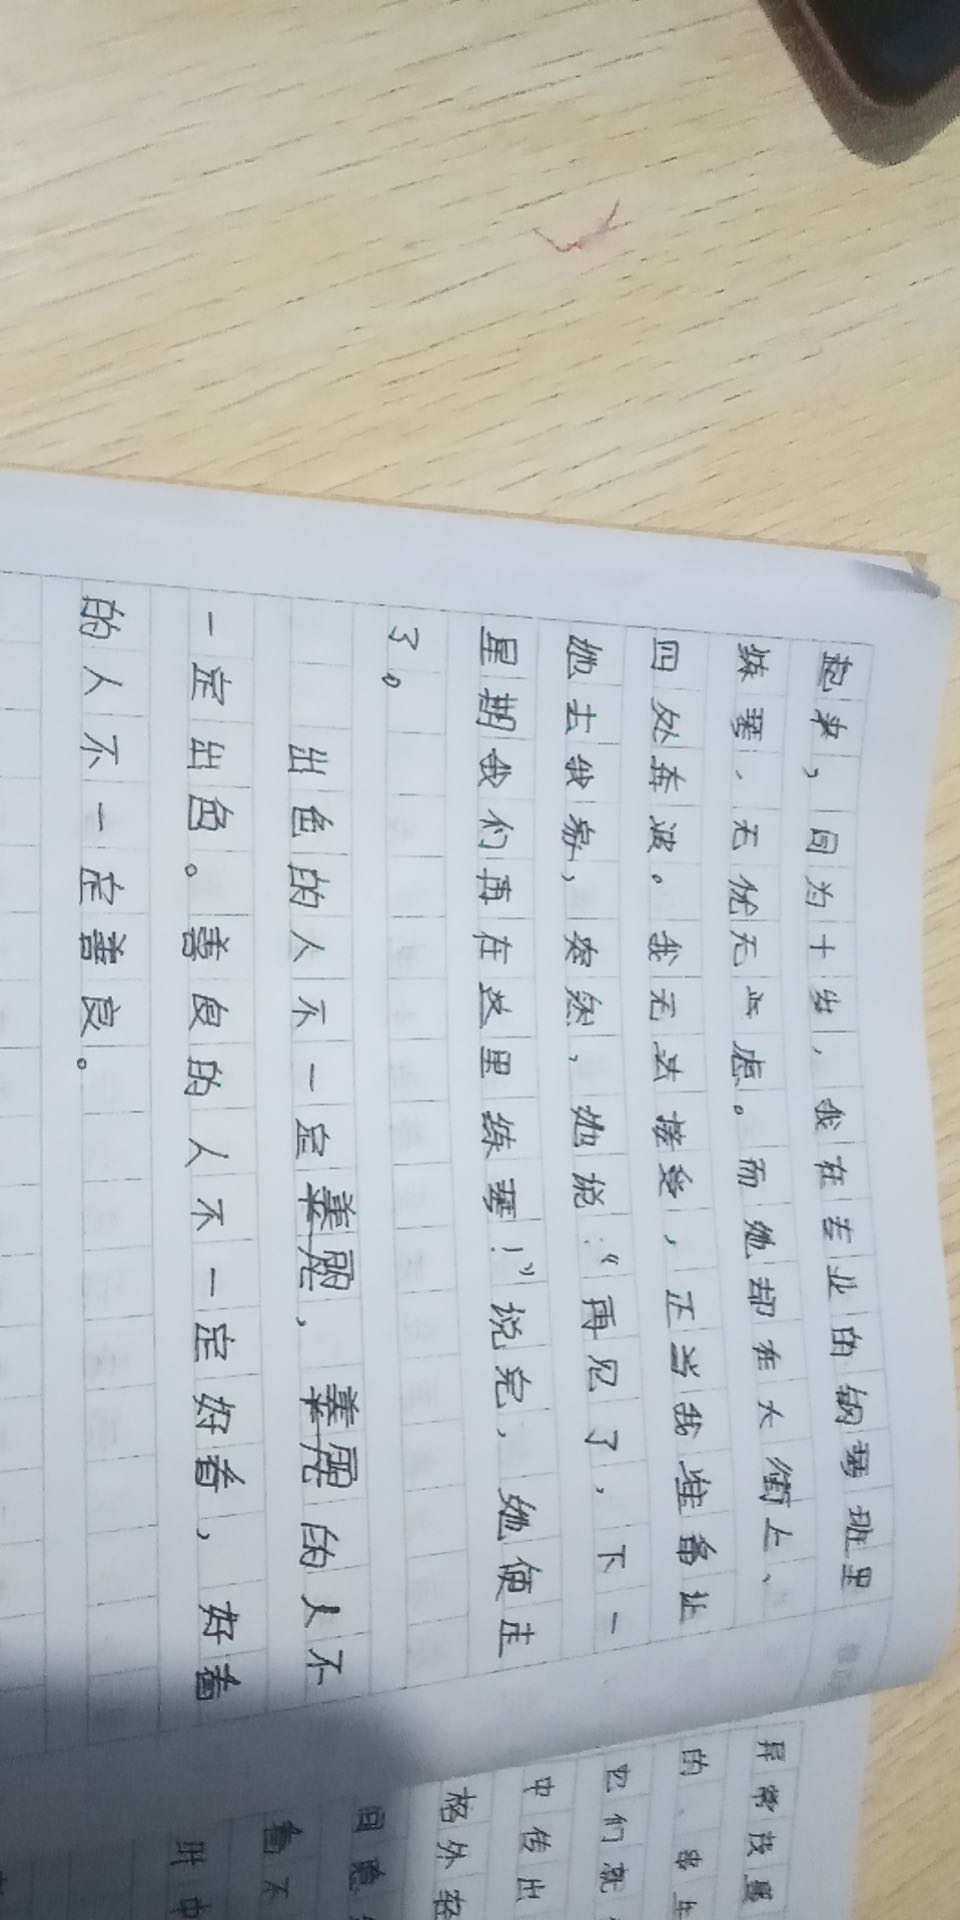 起来，同为十岁，我在专业的钢琴班里
练琴、无忧无虑。而她却在大街上、
四处奔波。我无法接受，正当我准备让
她去我家，突然，她说：“再见了，下一
星期我们再在这里练琴！”说完，她便走
了。
出色的人不一定美丽，美丽的人不
一定出色。善良的人不一定好看，好看
的人不一定善良。
异常茂盛
的
它们就
中传出
格外轻
回
着不